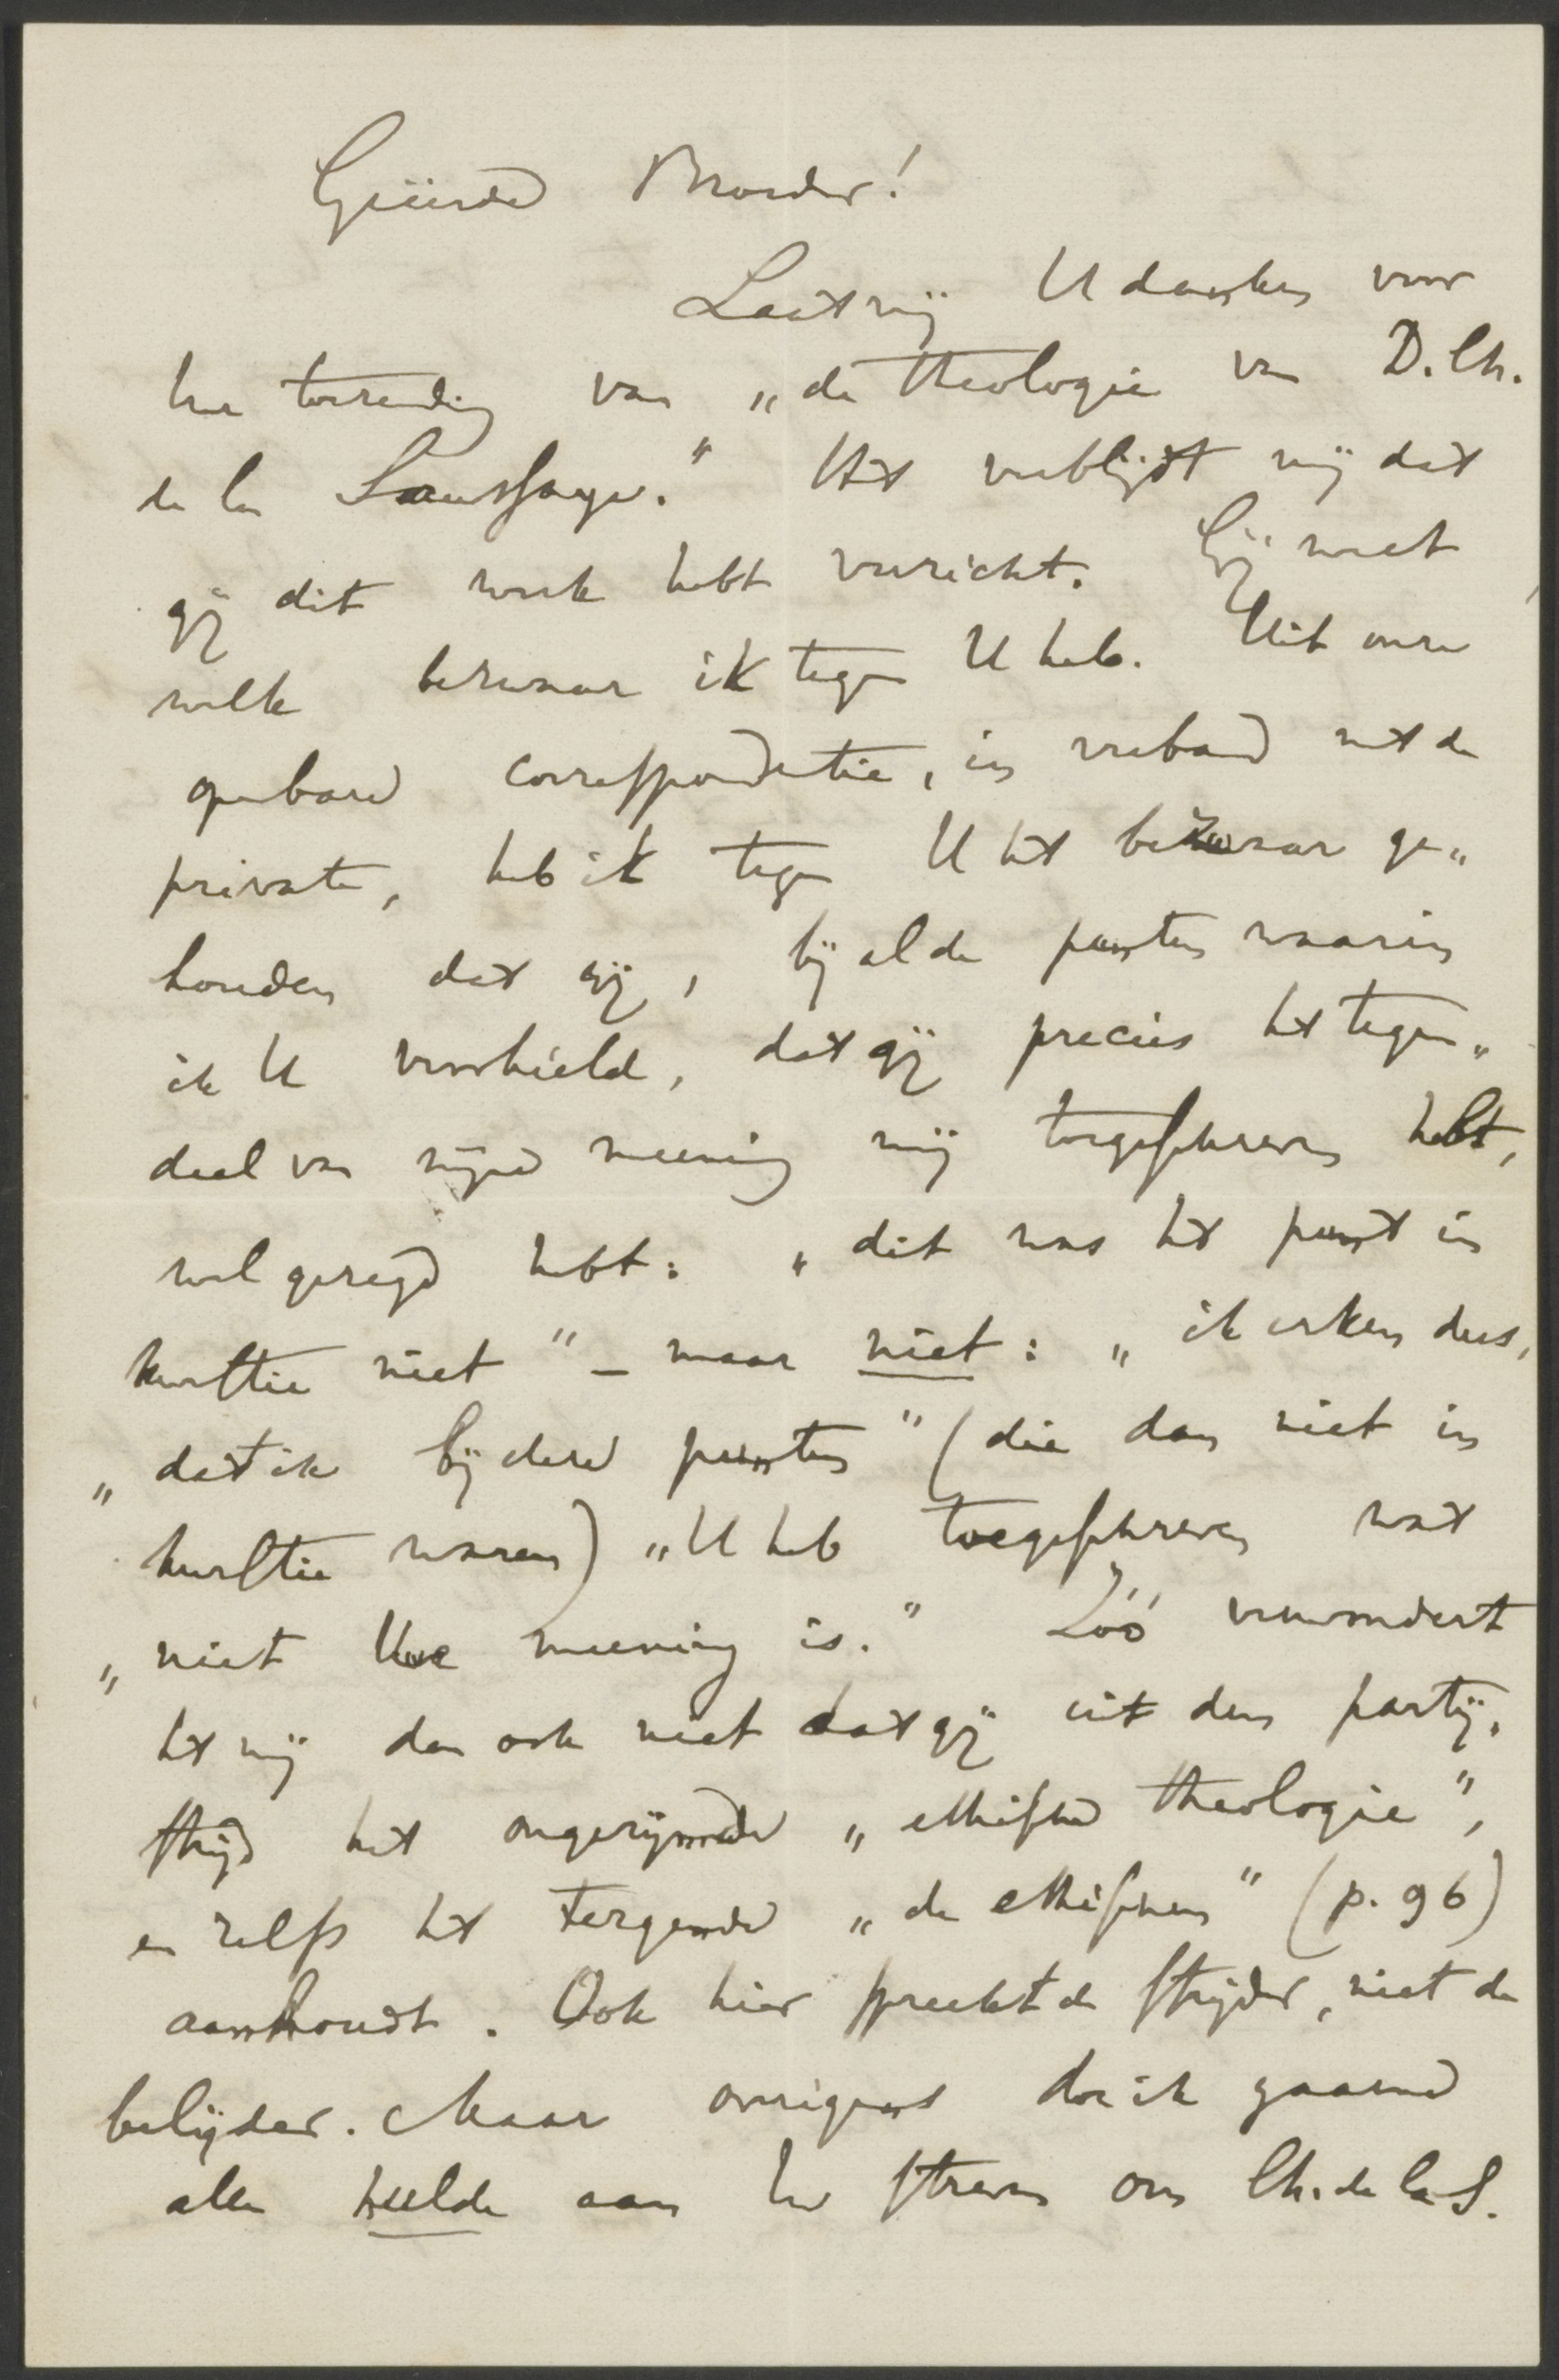 Geëerde Broeder!
Laat mij U danken voor
Uwe toezending van „de theologie van D. Ch.
de la Saussaye." Het verblijdt mij dat
gij dit werk hebt verricht. Gij weet
welk bezwaar ik tegen U heb. Uit onze
openbare correspondentie, in verband met de
private, heb ik tegen U het bezwaar ge„
houden dat gij, bij al de punten waarin
ik U voorhield, dat gij precies het tegen„
deel van mijne meening mij toegeschreven hebt,
wel gezegd hebt: „dit was het punt in
kwestie niet" – maar niet: „ik erken dus,
„dat ik bij deze punten" (die dan niet in
kwestie waren) „U heb toegeschreven wat
„niet Uwe meening is." Zóó verwondert
het mij dan ook niet dat gij uit den partij„
strijd het ongerijmde „ethische theologie",
en zelfs het tergende „de ethischen" (p. 96)
aanhoudt. Ook hier spreekt de strijder, niet de
belijder. Maar overigens doe ik gaarne
alle hulde aan Uw streven om Ch. de la S.